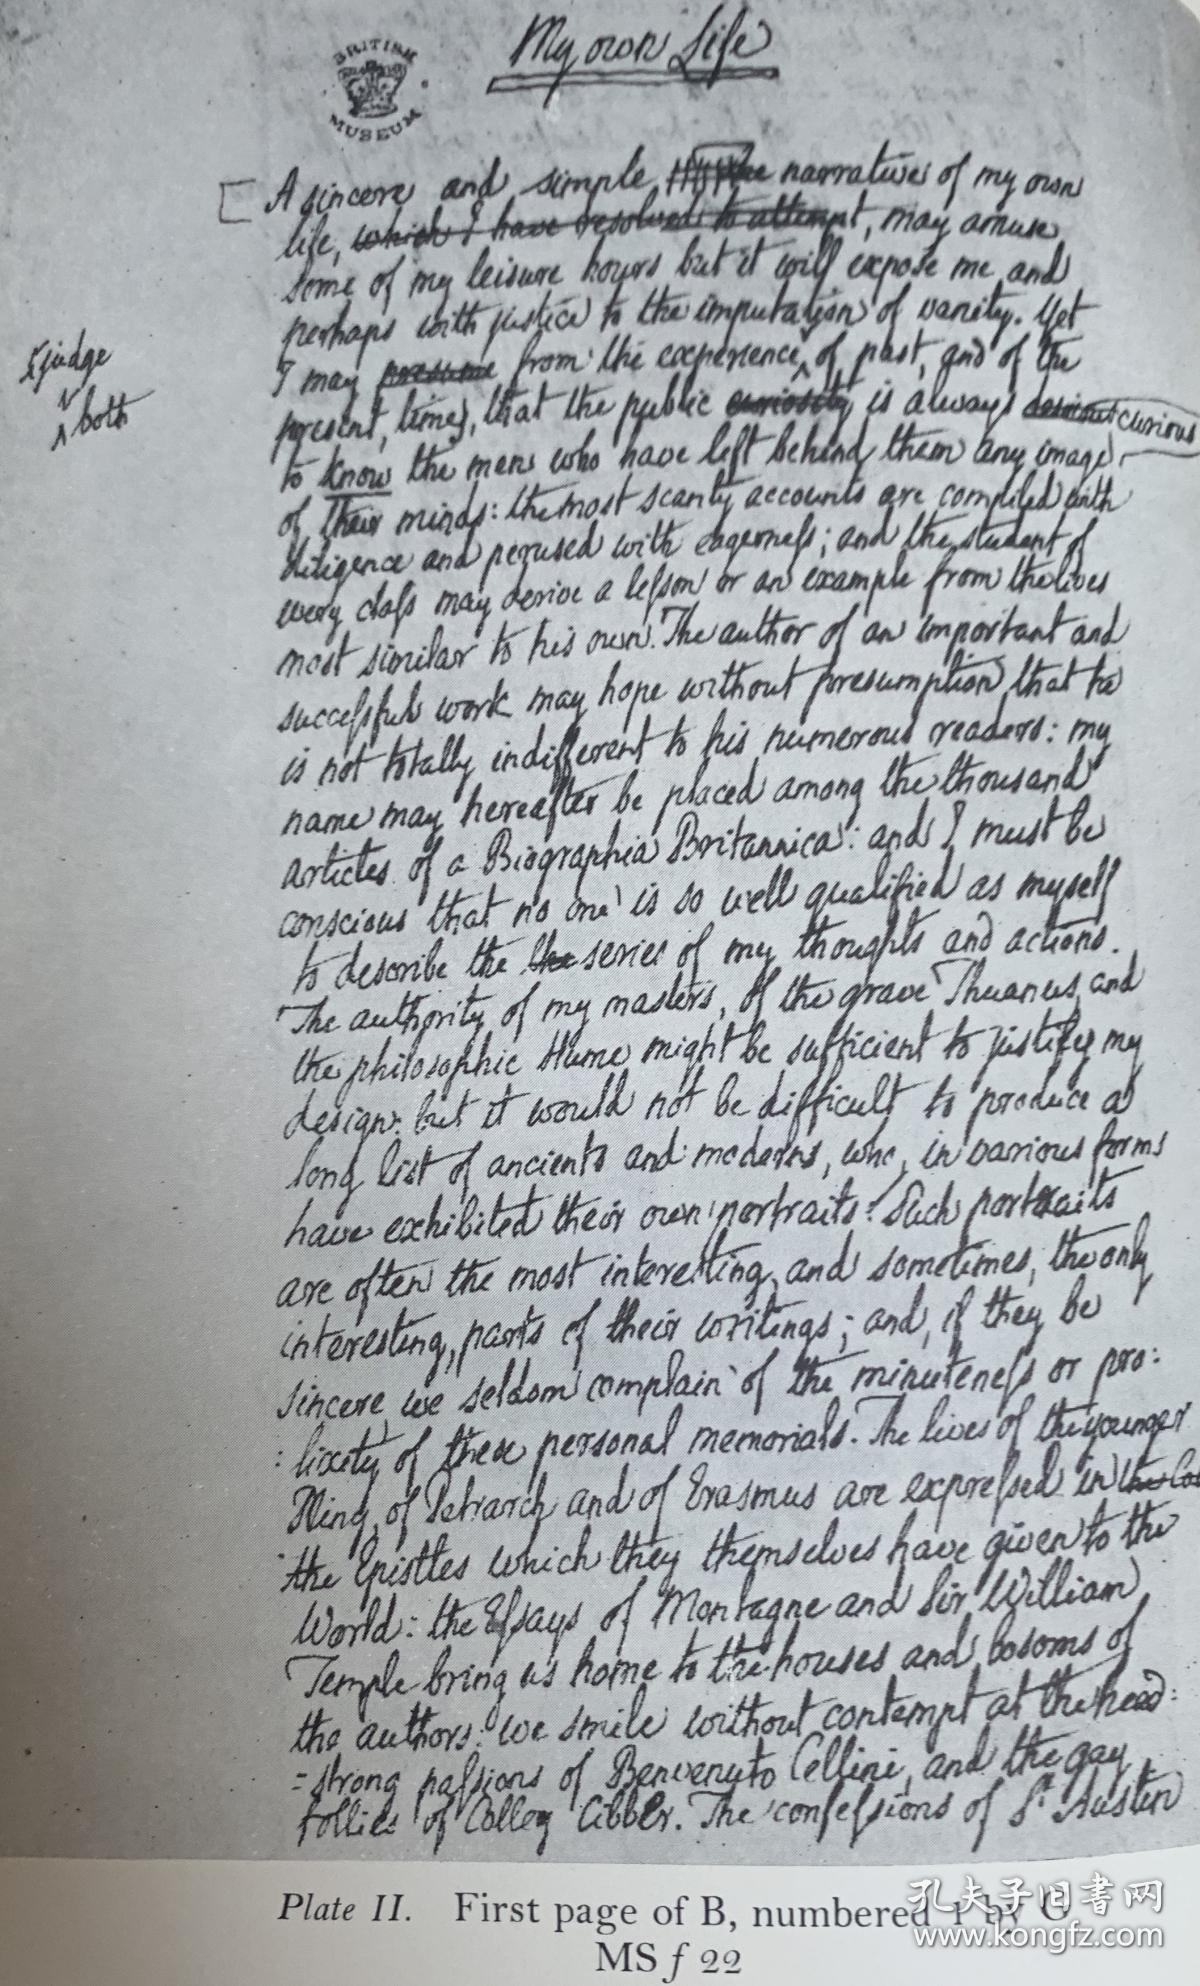 My own Life
BRITISH
MUSEUM
A sincere and simple narrative of my own
life, which I have resolved to attempt, may amuse
some of my leisure hours but it will expose me and
perhaps with justice to the imputation of vanity. Yet
judge
I may presume from the experience, of past, and of the
both
present, times, that the public curiosity is always curious
to know the men who have left behind them any image
of their minds: the most scanty accounts are compiled with
diligence and perused with eagerness; and the student of
every class may derive a lesson or an example from the lives
most similar to his own. The author of an important and
successful work may hope without presumption that he
is not totally indifferent to his numerous readers: my
name may hereafter be placed among the thousand
articles of a Biographia Britannica: and I must be
conscious that no one is so well qualified as myself
to describe the the series of my thoughts and actions.
The authority of my masters, of the grave Thuanus, and
the philosophic Hume might be sufficient to justify my
design: but it would not be difficult to produce a
long list of ancients and moderns, who, in various forms
have exhibited their own portraits. Such portraits
are often the most interesting, and sometimes, the only
interesting, parts of their writings; and, if they be
sincere, we seldom complain of the minuteness or pro:
:lixity of these personal memorials. The lives of the younger
Pliny, of Petrarch and of Erasmus are expressed in the
the Epistles which they themselves have given to the
World: the Essays of Montagne and Sir William
Temple bring us home to the houses and bosoms of
the authors: we smile without contempt at the head:
=strong passions of Benvenuto Cellini, and the gay
follies of Colley Cibber. The confessions of St Austin
Plate II. First page of B, numbered 1 by G
MS f 22
孔夫子旧书网
www.kongfz.com